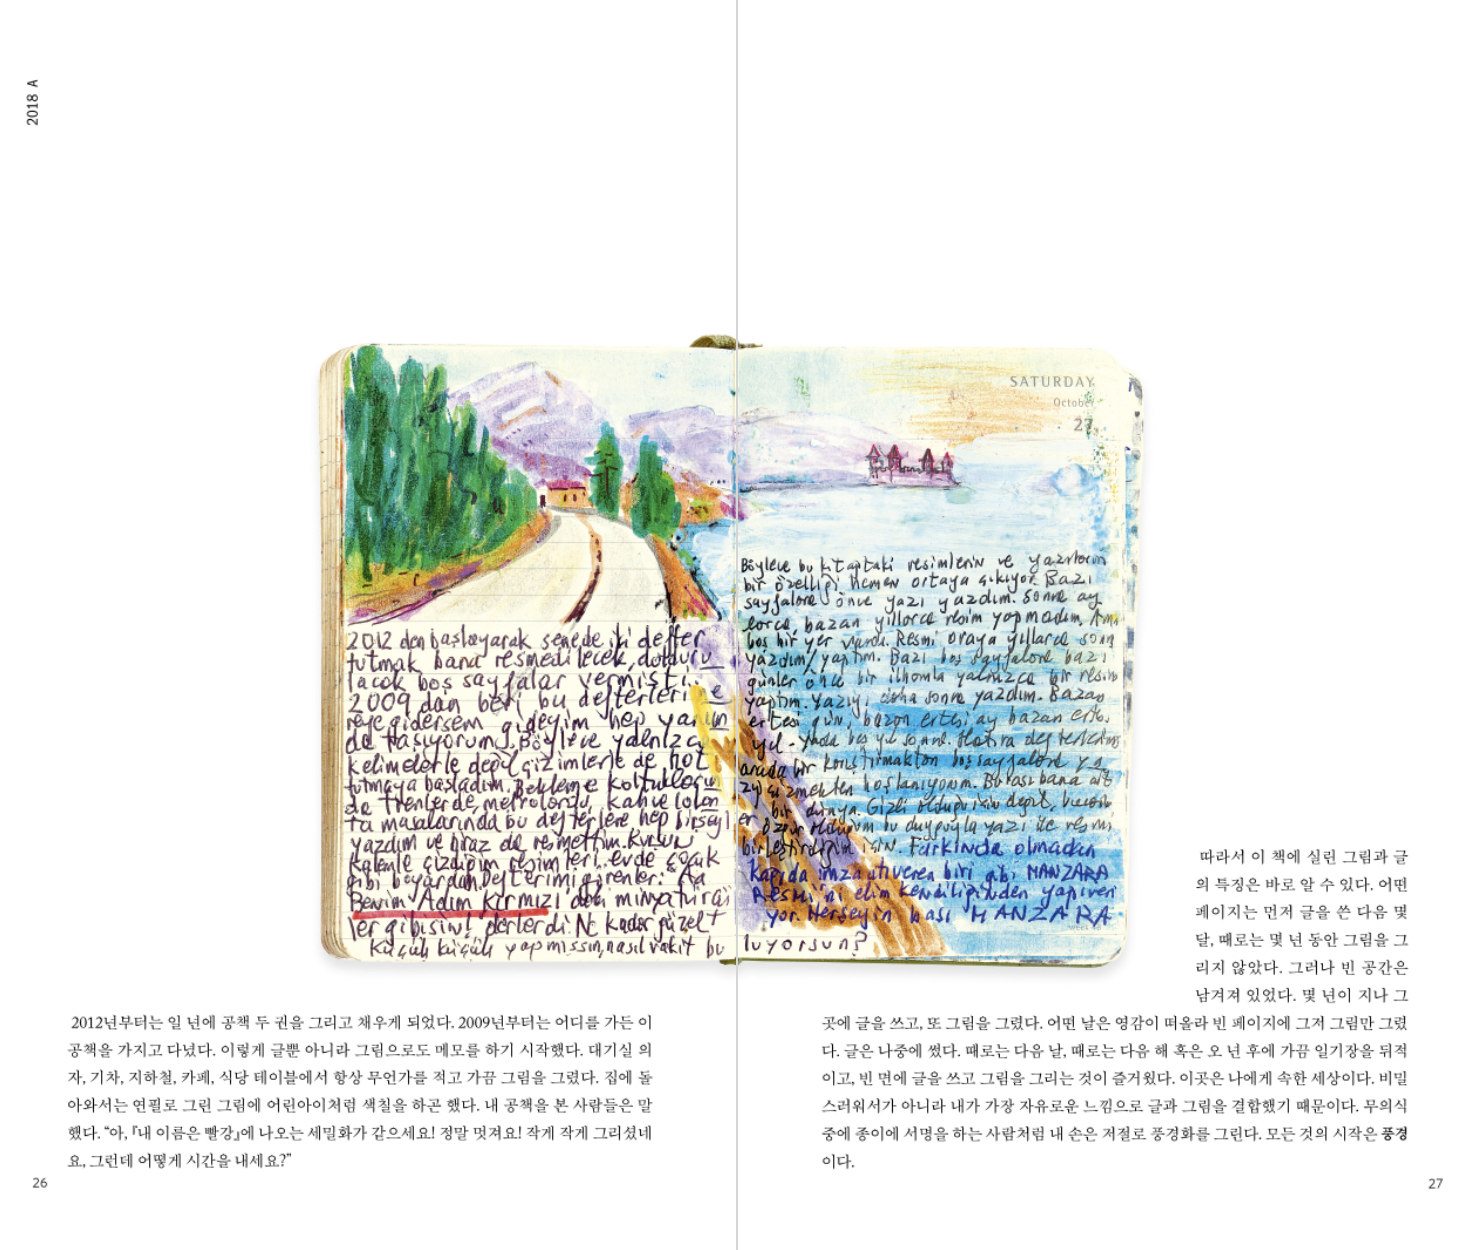 2018 A
SATURDAY
October
27
2012 den başlayarak senede iki defter
tutmak bana resmedilecek, dolduru
lacak boş sayfalar vermişti..
2009 dan beri bu defterleri ne
reye gidersem gideyim hep yanım
da taşıyorum. Böylece yalnızca
kelimelerle değil çizimlerle de not
tutmaya başladım. Bekleme koltukların
da trenlerde, metrolarda, kahve lokan
ta masalarında bu defterlere hep birşeyl
yazdım ve biraz da resmettim. Kurşun
kalemle çizdiğim resimleri.. evde çocuk
gibi boyardım. Defterimi görenler: Aa
Benim Adım Kırmızı daki minyatürcü
ler gibisin! derlerdi. Ne kadar güzel
küçük küçük yapmışsın, nasıl vakit bu
Böylece bu kitaptaki resimlerin ve yazıların
bir özelliği hemen ortaya çıkıyor. Bazı
sayfalara önce yazı yazdım. Sonra ay
larca bazan yıllarca resim yapmadım. Ama
boş bir yer vardı. Resmi oraya yıllarca sonra
yazdım/yaptım. Bazı boş sayfalara bazı
günler önce bir ilhamla yalnızca bir resim
yaptım. Yazıyı daha sonra yazdım. Bazan
ertesi gün, bazan ertesi ay bazan ertesi
yıl - yada beş yıl sonra. Hatıra defterlerini
arada bir karıştırmaktan boş sayfalara ya
zı çizmekten hoşlanıyorum. Burası bana ait
bir dünya. Gizli olduğu için değil, burada
er özgür olduğum bu duyguyla yazı ile resmi
birleştirdiğim için. Farkında olmadan
kağıda imza atıveren biri gibi MANZARA
Resmi'ni elim kendiliğinden yapıveri
yor. Herşeyin başı MANZARA
luyorsun?
2012년부터는 일 년에 공책 두 권을 그리고 채우게 되었다. 2009년부터는 어디를 가든 이
공책을 가지고 다녔다. 이렇게 글뿐 아니라 그림으로도 메모를 하기 시작했다. 대기실 의
자, 기차, 지하철, 카페, 식당 테이블에서 항상 무언가를 적고 가끔 그림을 그렸다. 집에 돌
아와서는 연필로 그린 그림에 어린아이처럼 색칠을 하곤 했다. 내 공책을 본 사람들은 말
했다. “아, 『내 이름은 빨강』에 나오는 세밀화가 같으세요! 정말 멋져요! 작게 작게 그리셨네
요, 그런데 어떻게 시간을 내세요?”
26
따라서 이 책에 실린 그림과 글
의 특징은 바로 알 수 있다. 어떤
페이지는 먼저 글을 쓴 다음 몇
달, 때로는 몇 년 동안 그림을 그
리지 않았다. 그러나 빈 공간은
남겨져 있었다. 몇 년이 지나 그
곳에 글을 쓰고, 또 그림을 그렸다. 어떤 날은 영감이 떠올라 빈 페이지에 그저 그림만 그렸
다. 글은 나중에 썼다. 때로는 다음 날, 때로는 다음 해 혹은 오 년 후에 가끔 일기장을 뒤적
이고, 빈 면에 글을 쓰고 그림을 그리는 것이 즐거웠다. 이곳은 나에게 속한 세상이다. 비밀
스러워서가 아니라 내가 가장 자유로운 느낌으로 글과 그림을 결합했기 때문이다. 무의식
중에 종이에 서명을 하는 사람처럼 내 손은 저절로 풍경화를 그린다. 모든 것의 시작은 풍경
이다.
27